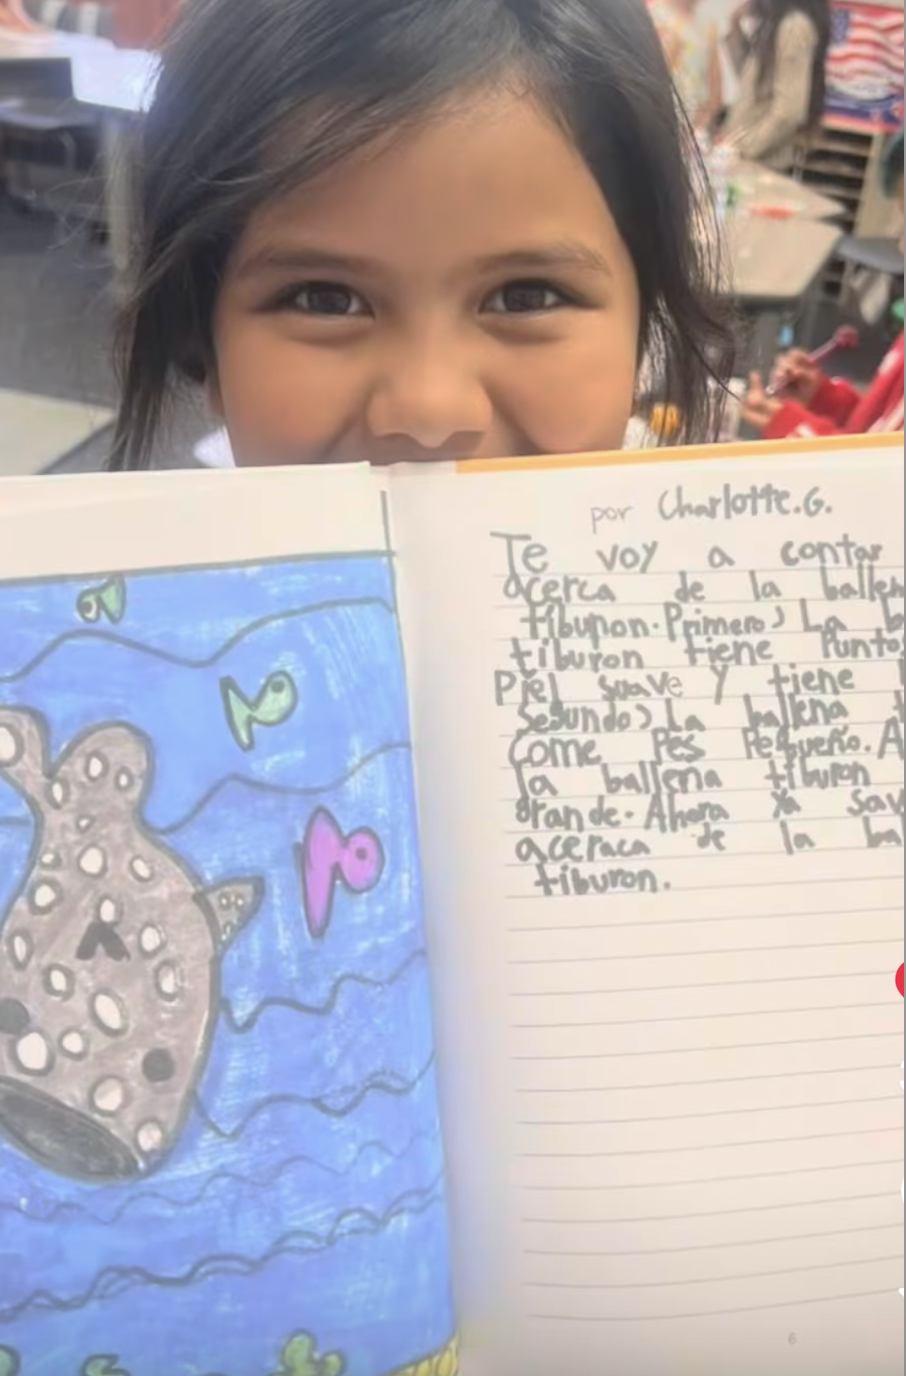 por Charlotte.G.
Te voy a contar
acerca de la ballen
tiburon. Primero, La b
tiburon tiene Punto
Piel suave y tiene
Segundo, La ballena t
come Pes Pequeño. A
la ballena tiburon
grande. Ahora ya sav
aceraca de la ba
tiburon.
6